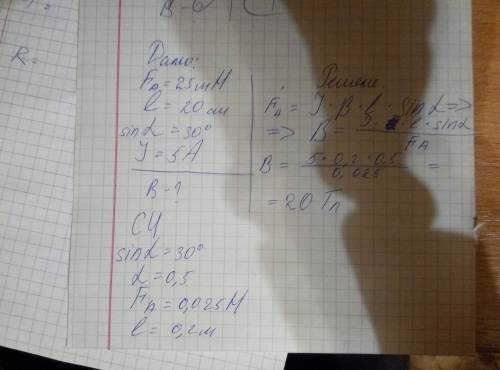 B-?
R=
Дано:
Fₐ=25mH
l=20см
sinα=30°
J=5A
B-?
СИ
sinα=30°
α=0,5
Fₐ=0,025H
l=0,2м
Решение:
Fₐ=J·B·l·sinα=>
=>B=J·l·sinα/Fₐ
B=5·0,2·0,5/0,025=
=20Тл